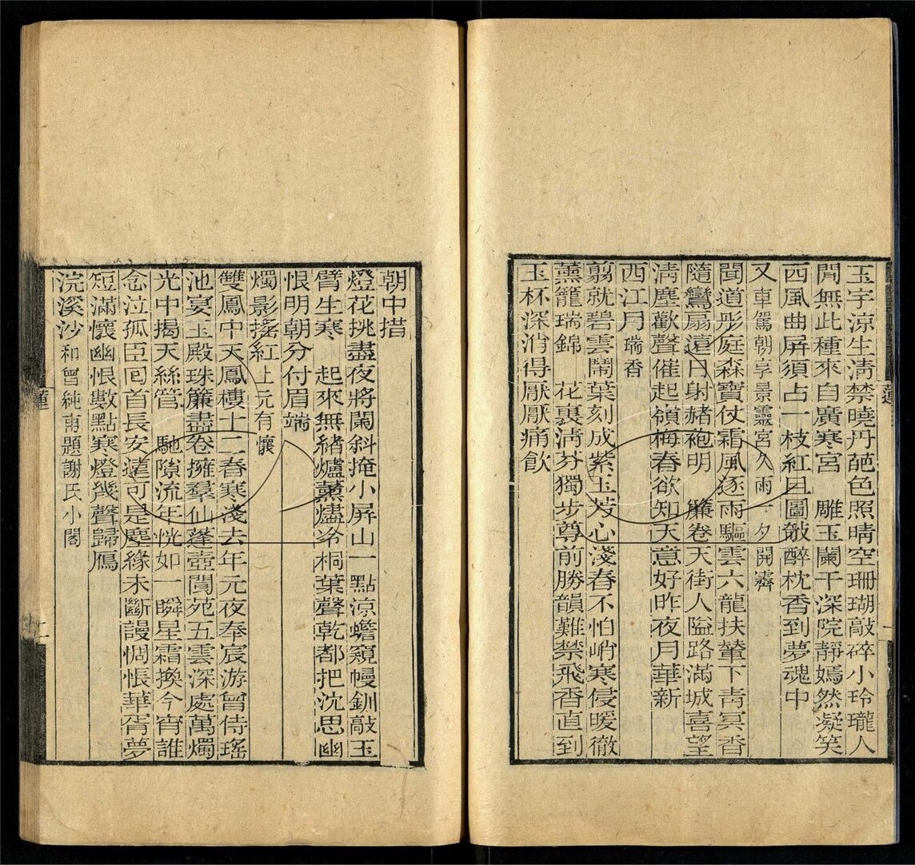 玉宇涼生清禁曉丹葩色照晴空珊瑚敲碎小玲瓏人
閒無此種來自廣寒宮　雕玉闌干深院靜嫣然凝笑
西風曲屏須占一枝紅且圖欹醉枕香到夢魂中
又車駕朝享景靈宮久雨一夕開霽
聞道彤庭森寶仗霜風逐雨驅雲六龍扶輦下青冥香
隨鸞扇遠日射赭袍明　簾卷天街人隘路滿城喜望
清塵歡聲催起嶺梅春欲知天意好昨夜月華新
西江月瑞香
翦就碧雲鬧葉刻成紫玉芳心淺春不怕峭寒侵暖徹
薰籠瑞錦　花裏清芬獨步尊前勝韻難禁飛香直到
玉杯深消得厭厭痛飲
朝中措
燈花挑盡夜將闌斜掩小屏山一點涼蟾窺幔釧敲玉
臂生寒　起來無緒爐薰燼冷桐葉聲乾都把沈思幽
恨明朝分付眉端
燭影搖紅上元有懷
雙鳳中天鳳樓十二春寒淺去年元夜奉宸游曾侍瑤
池宴玉殿珠簾盡卷擁羣仙蓬壺閬苑五雲深處萬燭
光中揭天絲管　馳隙流年恍如一瞬星霜換今宵誰
念泣孤臣回首長安遠可是塵緣未斷謾惆悵華胥夢
短滿懷幽恨數點寒燈幾聲歸鴈
浣溪沙和曾純甫題謝氏小閣
蓮
二